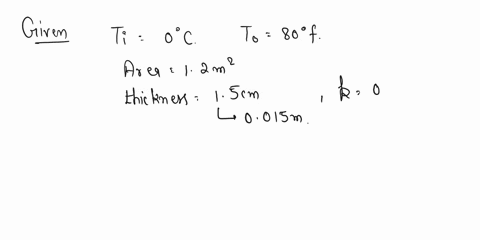 Given
Ti = 0°C. To = 80°f.
Area = 1.2m²
thickness = 1.5cm , k = 0
↳ 0.015m.